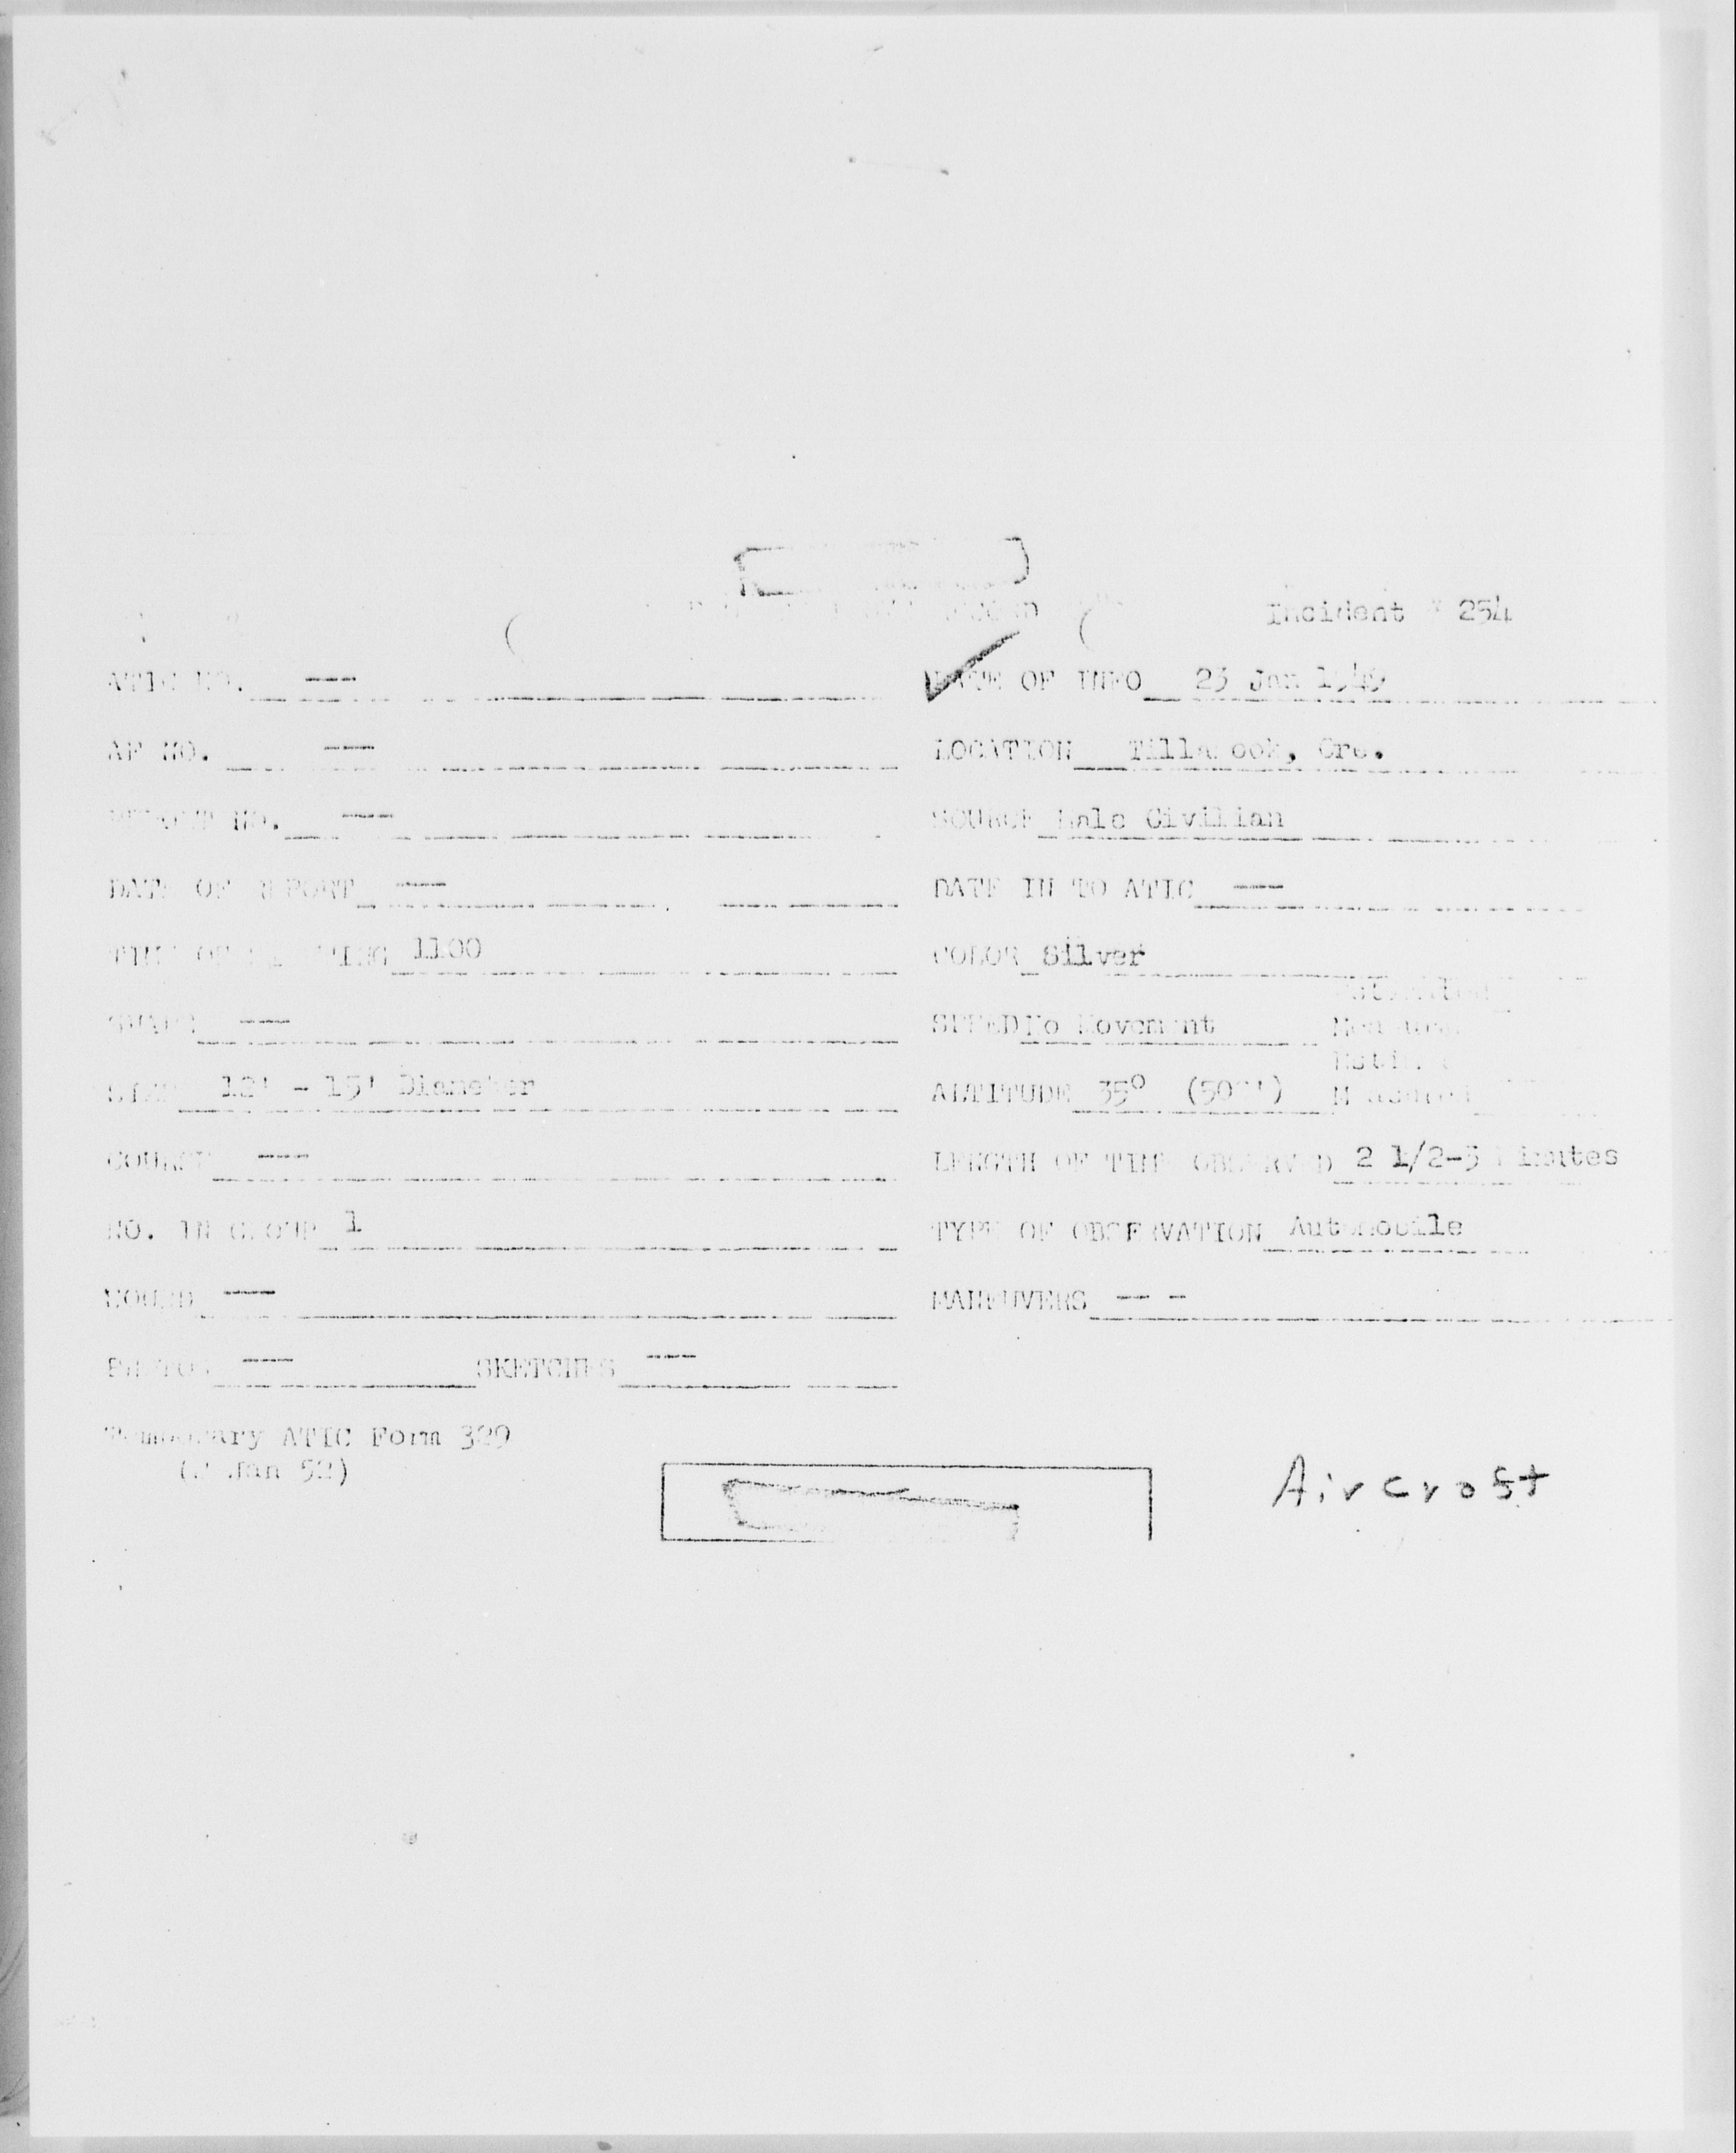 Incident 254
ATIC NO. --- DATE OF INFO 23 Jan 1949
AF NO. --- LOCATION Tillamook, Ore.
REPORT NO. --- SOURCE Male Civilian
DATE OF REPORT --- DATE IN TO ATIC ---
TIME OF SIGHTING 1100 COLOR Silver
SHAPE --- SPEED No Movement Estimated
Measured
SIZE 12' - 15' Diameter ALTITUDE 35° Estimated
Measured
COURSE --- LENGTH OF TIME OBSERVED 2 1/2-3 Minutes
NO. IN GROUP 1 TYPE OF OBSERVATION Automobile
SOUND --- MANEUVERS -- -
PHOTOS --- SKETCHES ---
Temporary ATIC Form 329
Jan 52)
Aircraft